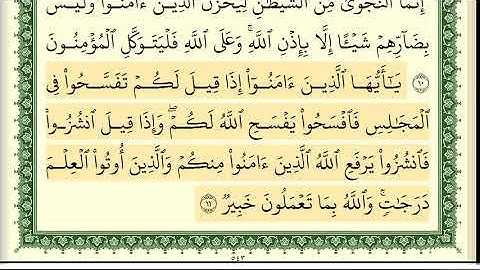 إِنَّمَا ٱلنَّجۡوَىٰ مِنَ ٱلشَّيۡطَٰنِ لِيَحۡزُنَ ٱلَّذِينَ ءَامَنُواْ وَلَيۡسَ
بِضَآرِّهِمۡ شَيۡـًٔا إِلَّا بِإِذۡنِ ٱللَّهِۚ وَعَلَى ٱللَّهِ فَلۡيَتَوَكَّلِ ٱلۡمُؤۡمِنُونَ
١٠ يَٰٓأَيُّهَا ٱلَّذِينَ ءَامَنُوٓاْ إِذَا قِيلَ لَكُمۡ تَفَسَّحُواْ فِي
ٱلۡمَجَٰلِسِ فَٱفۡسَحُواْ يَفۡسَحِ ٱللَّهُ لَكُمۡۖ وَإِذَا قِيلَ ٱنشُزُواْ
فَٱنشُزُواْ يَرۡفَعِ ٱللَّهُ ٱلَّذِينَ ءَامَنُواْ مِنكُمۡ وَٱلَّذِينَ أُوتُواْ ٱلۡعِلۡمَ
دَرَجَٰتٖۚ وَٱللَّهُ بِمَا تَعۡمَلُونَ خَبِيرٞ ١١
٥٤٣